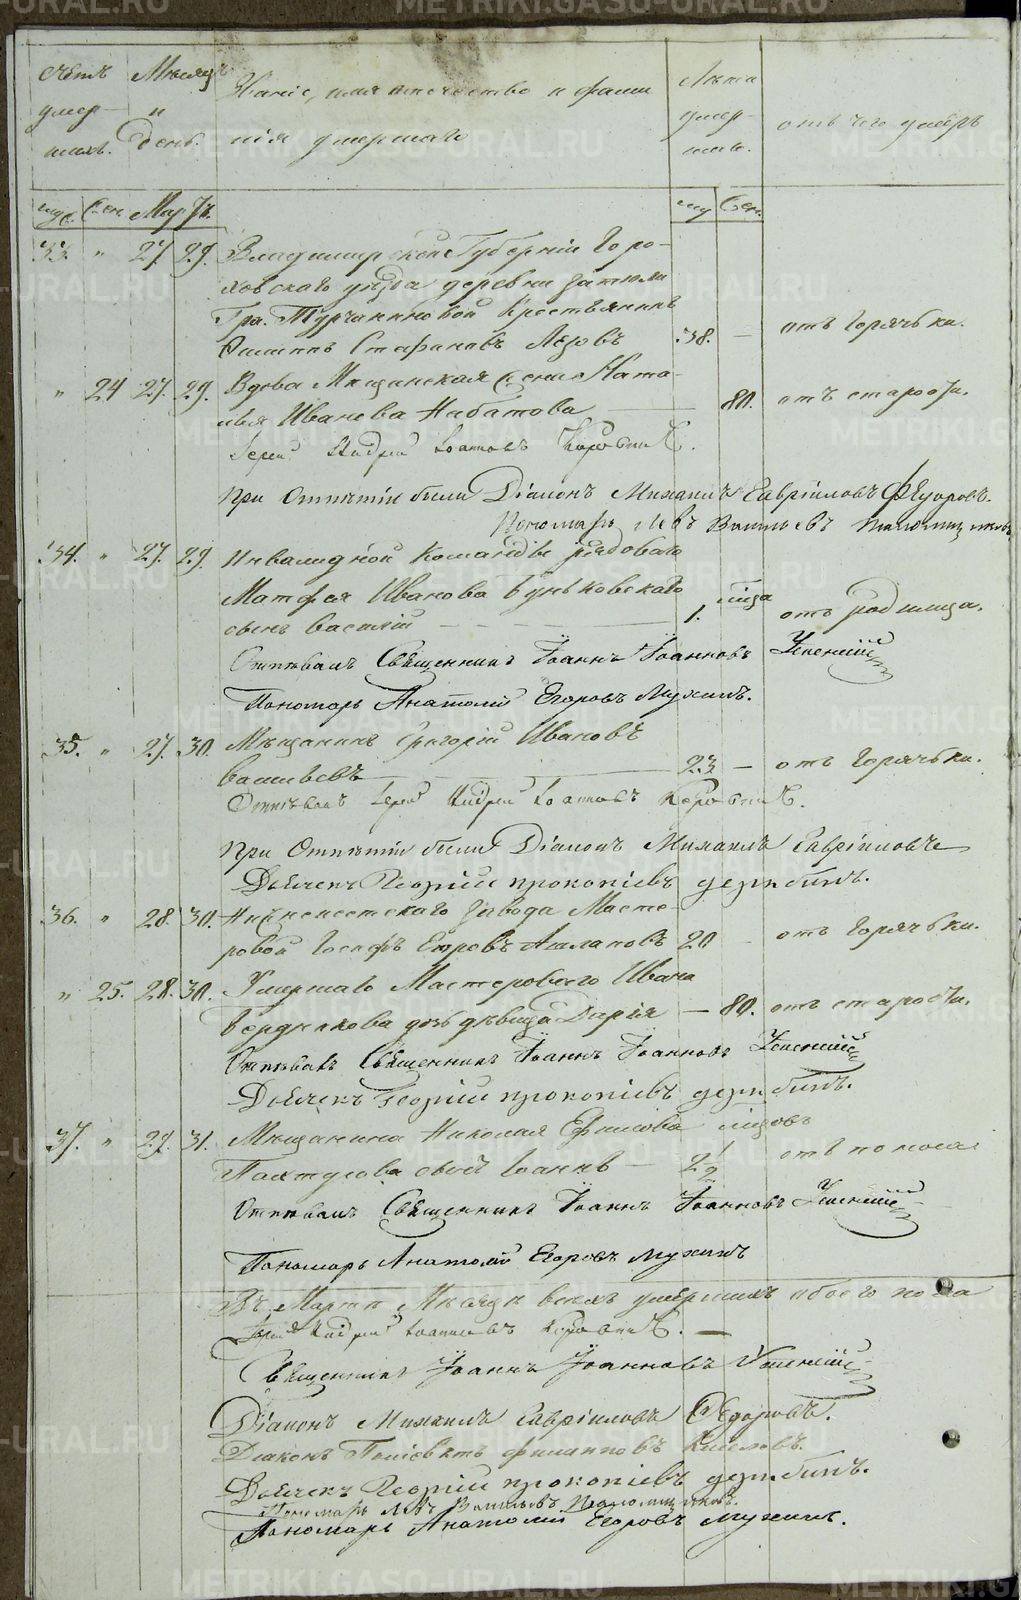 счетъ умер- шихъ. Мѣсяцъ и день. Званіе, имя отечество и фами- лія умершаго Лѣта умер- шихъ. отъ чего умеръ
муж. Жен. Мартъ. му Жен.
33. " 27. 29. Владимирской Губерніи Горо-
ховскаго уѣзда деревни
Гра. Турчаниновой Крестьянинъ
Филиппъ Стафановъ 38. — отъ Горячьки.
" 24 27. 29. Вдова Мещанская Жена Ната-
лья Иванова Набатова — 80. отъ старости.
Іерей Андрей Іоанновъ
При Отпѣтіи были Діаконъ Михаилъ Гавріиловъ Ѳедоровъ.
Пономарь Левъ Васильевъ
34. " 27. 29. Инвалидной Команды рядоваго
Матфея Иванова Буньковскаго
сынъ Василій — 1. мѣсяца отъ родимца.
Отпѣвалъ Священникъ Іоаннъ Іоанновъ Успенскій
Пономарь Анатолій Егоровъ Мухинъ.
35. " 27. 30. Мѣщанинъ Григорій Ивановъ
Васильевъ — 23 — отъ Горячьки.
Отпѣвалъ Іерей Андрей Іоанновъ
При Отпѣтіи были Діаконъ Михаилъ Гавріиловъ
Дьячекъ Георгій Прокопіевъ Дерябинъ.
36. " 28. 30. Нейвенскаго Завода Масте-
ровой Іосифъ Егоровъ 20 — отъ Горячьки.
" 25. 28. 30. Умершаго Мастероваго Ивана
Бердникова дочь дѣвица Дарія — 80. отъ старости.
Отпѣвалъ Священникъ Іоаннъ Іоанновъ Успенскій
Дьячекъ Георгій Прокопіевъ Дерябинъ.
37. " 29. 31. Мѣщанина Николая Ефимова
Пахтусова сынъ Іоаннъ — 2 1/2 отъ поноса
Отпѣвалъ Священникъ Іоаннъ Іоанновъ Успенскій
Пономарь Анатолій Егоровъ Мухинъ
Въ Мартѣ Мѣсяцѣ всехъ умершихъ обоего пола
Іерей Андрей Іоанновъ
Священникъ Іоаннъ Іоанновъ Успенскій
Діаконъ Михаилъ Гавріиловъ Ѳедоровъ.
Діаконъ Поліевктъ Филипповъ Киселевъ.
Дьячекъ Георгій Прокопіевъ Дерябинъ.
Пономарь Левъ Васильевъ
Пономарь Анатолій Егоровъ Мухинъ.